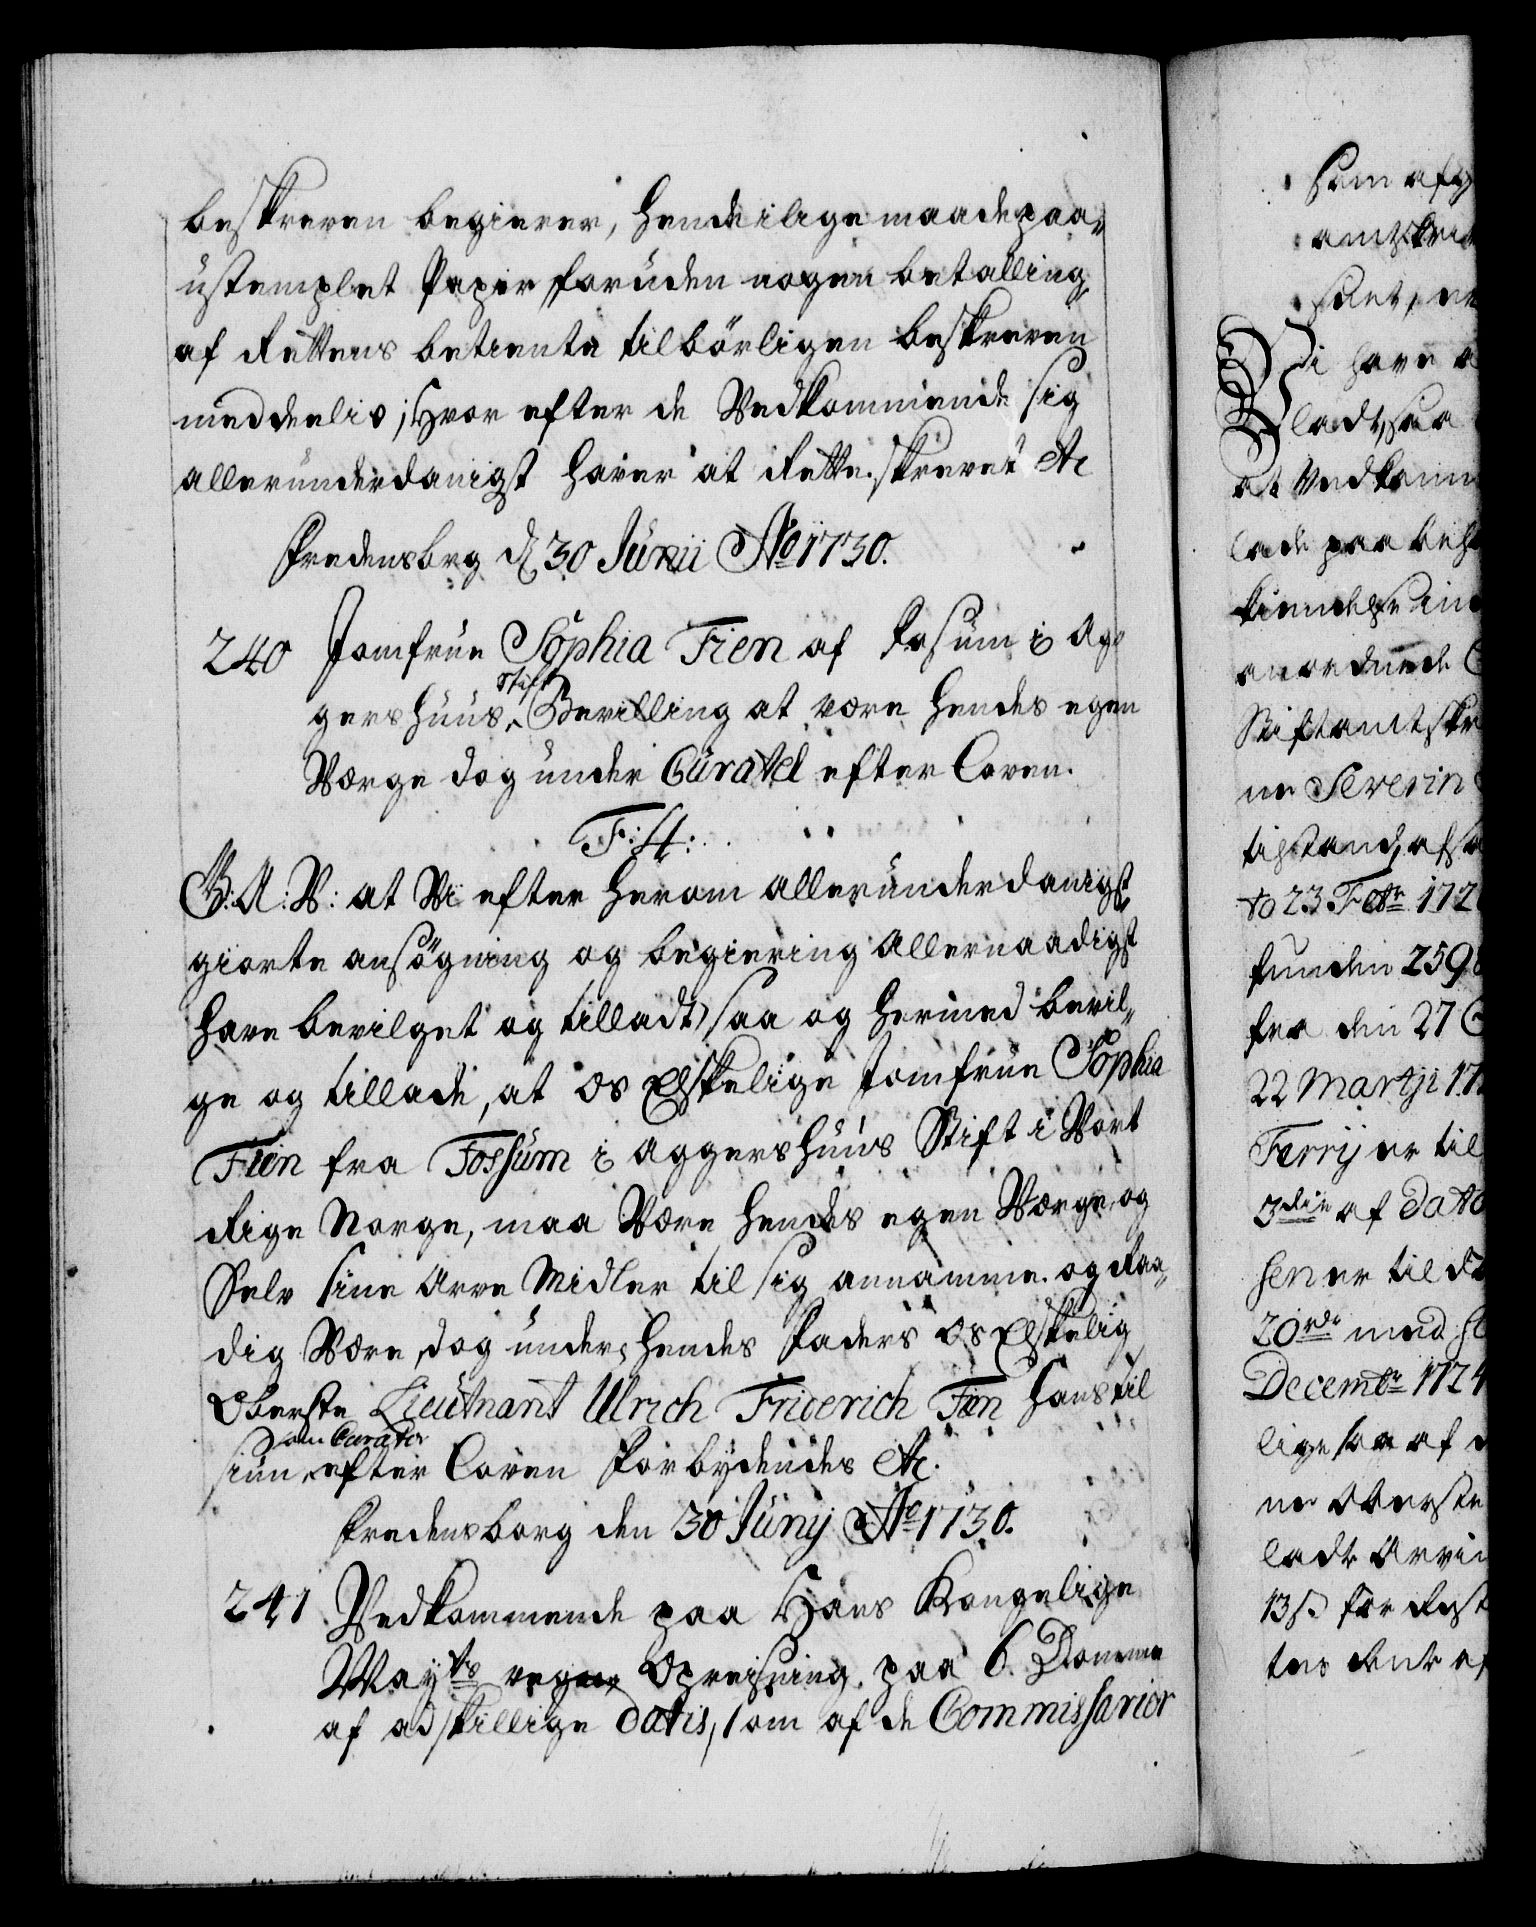 beskreven begierer, hende i lige maade paa
ustemplet Papir foruden nogen betalling
af Rettens betiente tilbörligen beskreven
meddeelis; Hvor efter de Vedkommende sig
allerunderdanigst haver at Rette. skrevet &c
Fredensbrg d 30 Junii Ao 1730.
240 Jomfrue Sophia Fien af Fosum i Ag-
gershuus Stift Bevilling at være hendes egen
Værge dog under Curatel efter Loven.
F: 4:
G: A: V: at Vi efter herom allerunderdanigst
giorte ansögning og begiering allernaadigst
have bevilget og tilladt, saa og hermed bevil-
ge og tillade, at os Elskelige Jomfrue Sophia
Fien fra Fossum i Aggershuus Stift i Vort
Rige Norge, maa Være hendes egen Værge, og
Selv sine Arve Midler til sig annamme. og Raa-
dig Være, dog under hendes Faders os Elskelig
Oberste Lieutnant Ulrich Friderich Fien hans til
siun som Curator efter Loven Forbydendes &c.
Fredensborg den 30 Junij Ao 1730.
241 Vedkommende paa Hans Kongelige
Mayts vegne Opreisning paa 6. Domme
af adskillige Datis, som af de Commissarier
som afg
amtskri
Vi have a
ladt, saa
at Vedkomm
lade paa beh
kiendelse in
anordnede C
Stiftamtskr
ne Severin
tistand, afsa
to 23 Febr 172
funden 2598
fra den 27
22 Martji 17
Ferrij er til
3die af Dato
sen er til d
20nde med
Decembr 1724
lige saa af
ne Oberste
ladt Arvin
13 s. for Rest